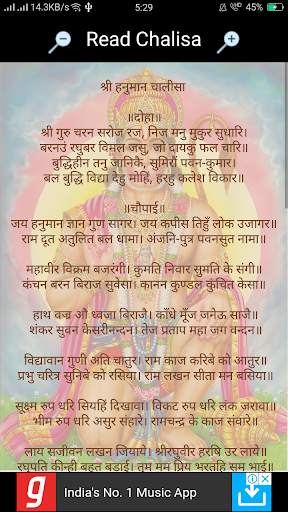 14.3KB/s 5:29 4G 45%
Read Chalisa
श्री हनुमान चालीसा
॥दोहा॥
श्री गुरु चरन सरोज रज, निज मनु मुकुर सुधारि।
बरनउं रघुबर विमल जसु, जो दायकु फल चारि॥
बुद्धिहीन तनु जानिके, सुमिरौं पवन-कुमार।
बल बुद्धि विद्या देहु मोहिं, हरहु कलेश विकार॥
॥चौपाई॥
जय हनुमान ज्ञान गुण सागर। जय कपीस तिहुँ लोक उजागर॥
राम दूत अतुलित बल धामा। अंजनि-पुत्र पवनसुत नामा॥
महावीर विक्रम बजरंगी। कुमति निवार सुमति के संगी॥
कंचन बरन बिराज सुवेसा। कानन कुण्डल कुंचित केसा॥
हाथ वज्र औ ध्वजा बिराजे। काँधे मूँज जनेऊ साजै॥
शंकर सुवन केसरीनन्दन। तेज प्रताप महा जग वन्दन॥
विद्यावान गुणी अति चातुर। राम काज करिबे को आतुर॥
प्रभु चरित्र सुनिबे को रसिया। राम लखन सीता मन बसिया॥
सूक्ष्म रुप धरि सियहिं दिखावा। विकट रुप धरि लंक जरावा॥
भीम रुप धरि असुर संहारे। रामचन्द्र के काज संवारे॥
लाय सजीवन लखन जियाये। श्रीरघुवीर हरषि उर लाये॥
रघुपति कीन्ही बहुत बड़ाई। तुम मम प्रिय भरतहि सम भाई॥
India's No. 1 Music App